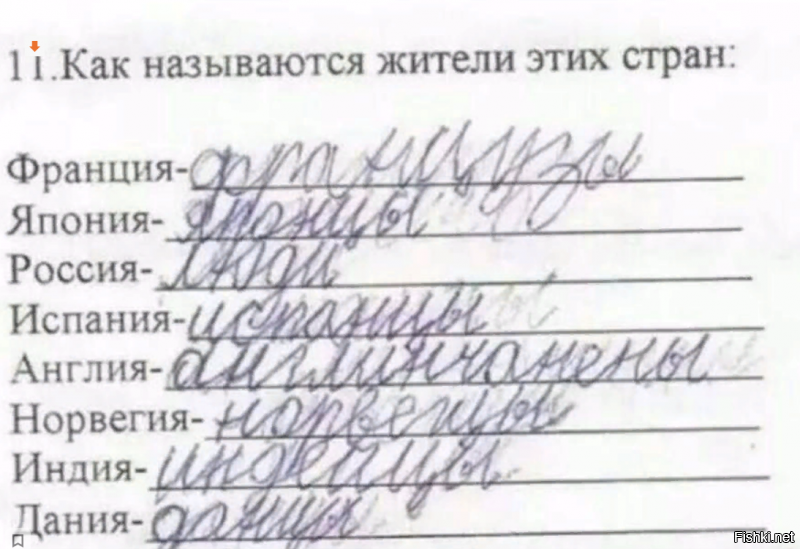 11.Как называются жители этих стран:
Франция-французы
Япония-японцы
Россия-люди
Испания-испанцы
Англия-англинчанены
Норвегия-норвецы
Индия-индейцы
Дания-данцы
Fishki.net